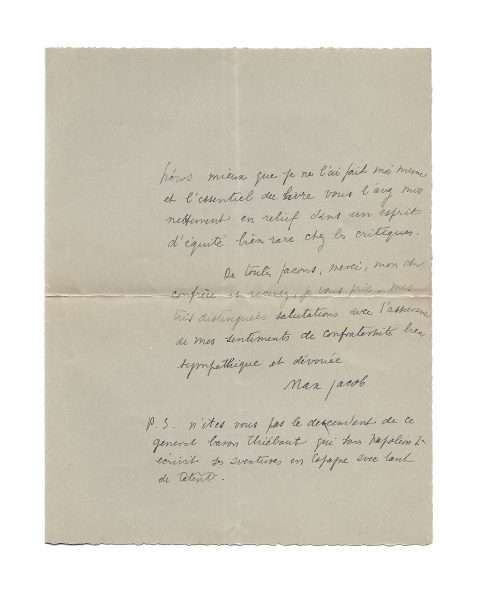 héros mieux que je ne l'ai fait moi même
et l'essentiel du livre vous l'avez mis
nettement en relief dans un esprit
d'équité bien rare chez les critiques.
De toutes façons, merci, mon cher
confrère et recevez, je vous prie, mes
très distinguées salutations avec l'assurance
de mes sentiments de confraternité bien
sympathique et dévouée
Max Jacob
P.S. n'êtes vous pas le descendant de ce
général baron Thiébaut qui sous Napoléon Ier
écrivit ses aventures en Espagne avec tant
de talent.